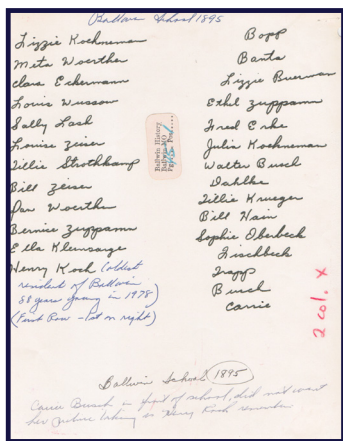 Ballwin School 1895
Lizzie Kochneman
Meta Woerther
Clara Eckermann
Louis Wusson
Sally Lash
Louise Zeiser
Tillie Strothkamp
Bill Zeiser
Woerther
Bernice Zuppann
Ella Kleinsarge
Henry Koch (oldest
resident of Ballwin
88 years young in 1978)
(First Row - 1st on right)
Bopp
Banta
Lizzie
Ethel Zuppann
Fred Erke
Julia Kochneman
Walter Busch
Dahlke
Tillie Krueger
Bill Hain
Sophie Oberbeck
Fischbeck
Trapp
Busch
Carrie
Ballwin History
2 col. x
Ballwin School 1895
Carrie Busch in front of school, did not want
her picture taken as Henry Koch remembers